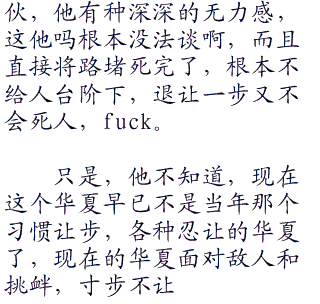 伙，他有种深深的无力感，
这他吗根本没法谈啊，而且
直接将路堵死完了，根本不
给人台阶下，退让一步又不
会死人，fuck。
只是，他不知道，现在
这个华夏早已不是当年那个
习惯让步，各种忍让的华夏
了，现在的华夏面对敌人和
挑衅，寸步不让